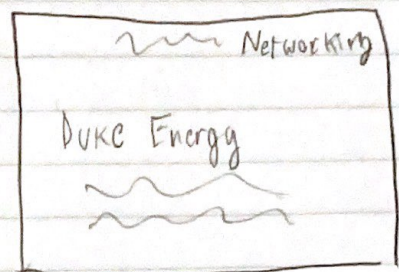 Networking
Duke Energy